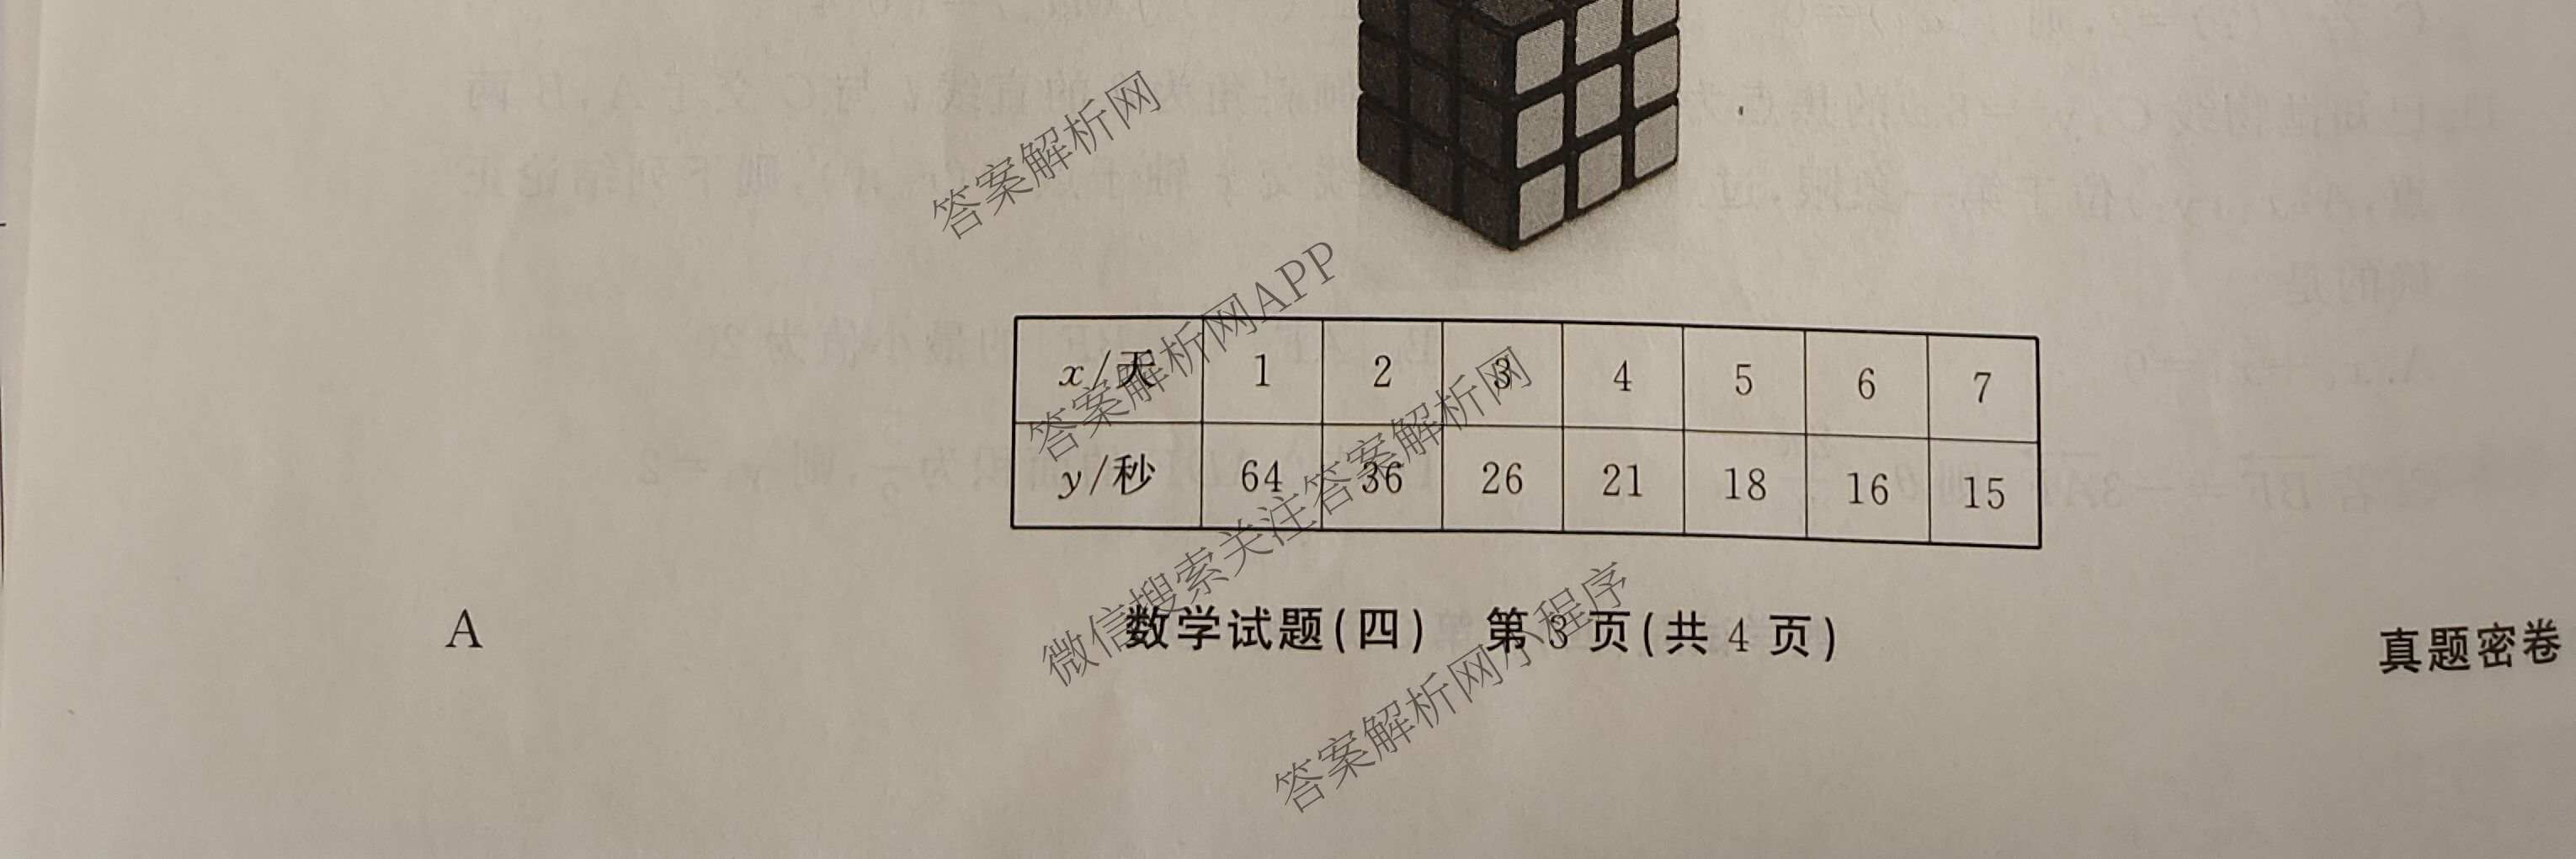 答案解析网
答案解析网APP
x/天 1 2 3 4 5 6 7
y/秒 64 36 26 21 18 16 15
微信搜索关注答案解析网
A 数学试题(四) 第3页(共4页) 真题密卷
答案解析网小程序